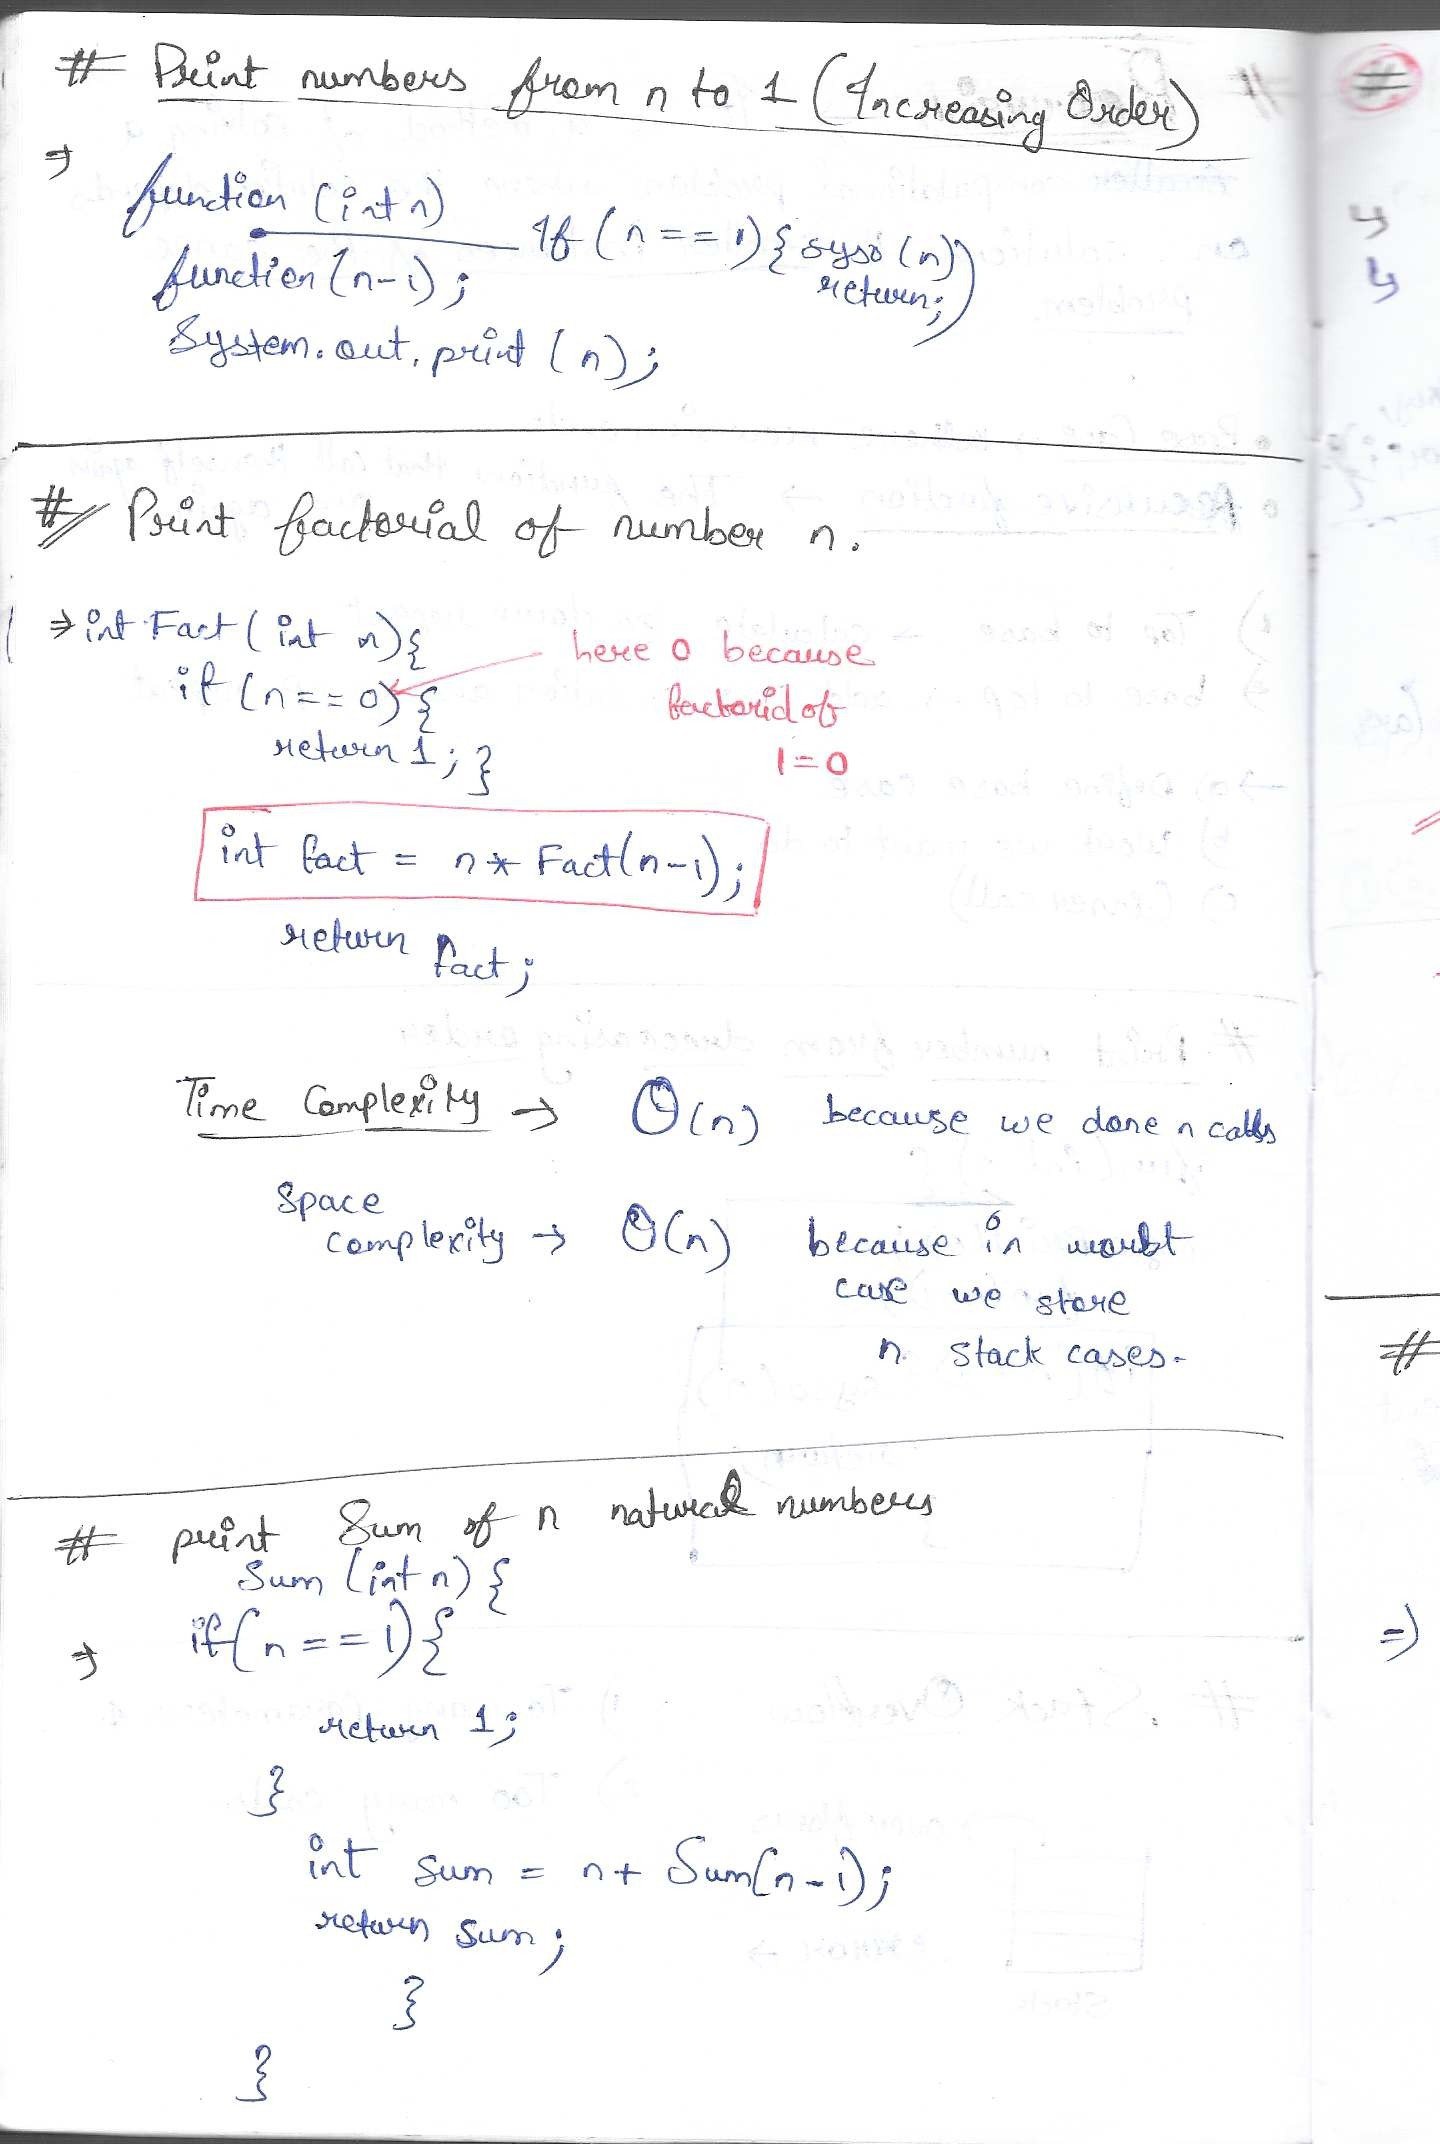 # Print numbers from n to 1 (Increasing Order)
⇒
function (int n)
If (n == 1) { syso (n)
return; }
function (n-1);
System.out.print (n);
# Print factorial of number n.
⇒ int Fact (int n) {
if (n == 0) {
here 0 because
factorial of
1 = 0
return 1; }
int fact = n * Fact(n-1);
return fact;
Time Complexity → O(n) because we done n calls
Space
complexity → O(n) because in worst
case we store
n stack cases.
# print Sum of n natural numbers
Sum (int n) {
⇒ if (n == 1) {
return 1;
}
int sum = n + Sum(n-1);
return sum;
}
}
#
#
⇒